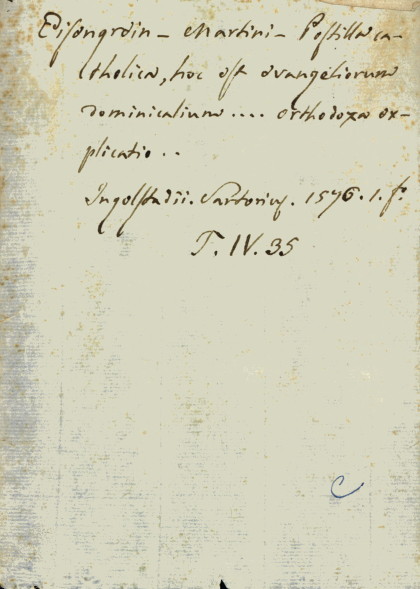 Eisengrein - Martini - Postilla ca-
tholica, hoc est evangeliorum
dominicalium .... orthodoxa ex-
plicatio ..
Ingolstadii. Sartorius. 1576. 1. fº.
T. IV. 35
C